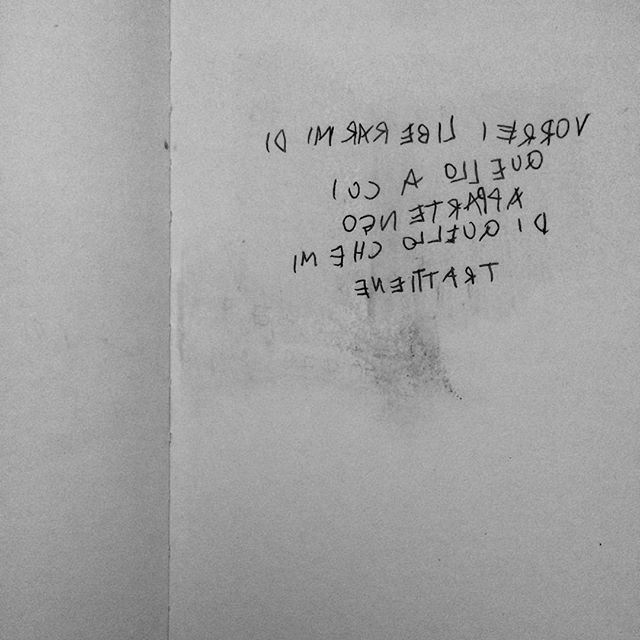 VORREI LIBERARMI DI
QUELLO A CUI
APPARTENGO
DI QUELLO CHE MI
TRATTIENE